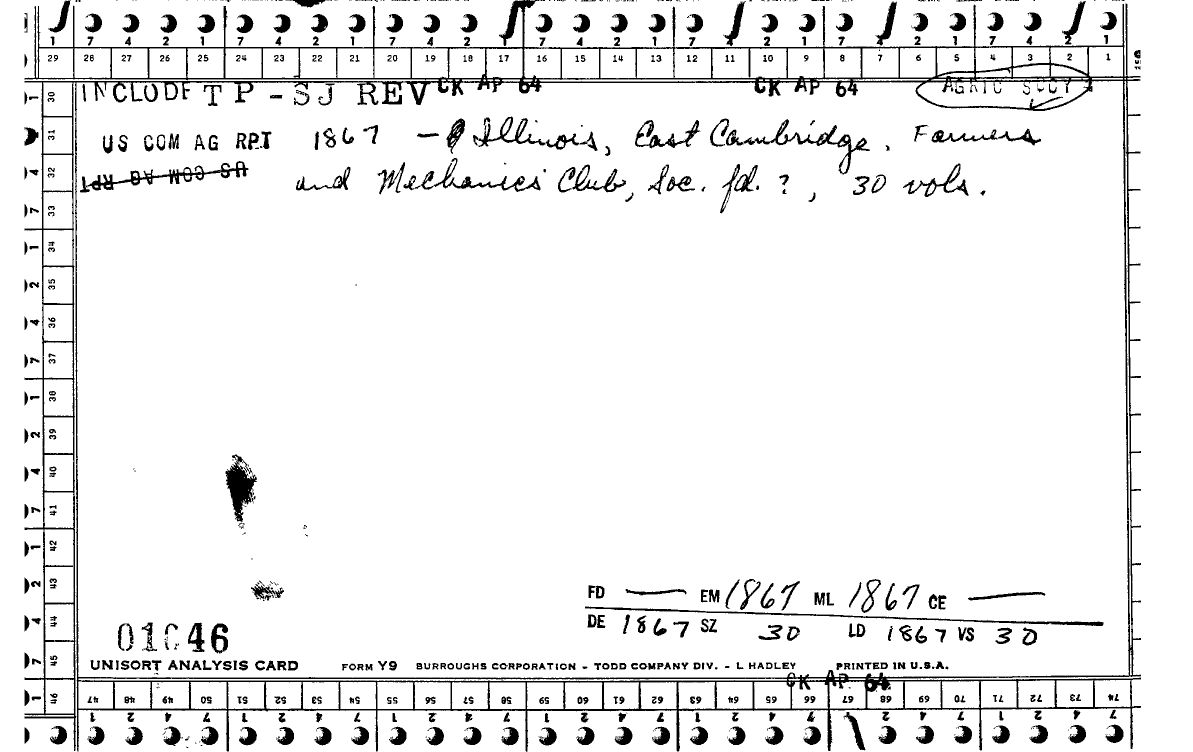 7 4 2 1 7 4 2 1 7 4 2 1 7 4 2 1 7 4 2 1 7 4 2 1 7 4 2 1
29 28 27 26 25 24 23 22 21 20 19 18 17 16 15 14 13 12 11 10 9 8 7 6 5 4 3 2 1
INCLUDE TP - SJ REV CK AP 64 CK AP 64 AGRIC SOCY
US COM AG RPT 1867 - Illinois, East Cambridge. Farmers
US COM AG RPT and Mechanics Club, Soc. fd. ?, 30 vols.
30
31
32
33
34
35
36
37
38
39
40
41
42
43
44
45
46
FD — EM 1867 ML 1867 CE —
DE 1867 SZ 30 LD 1867 VS 30
01046
UNISORT ANALYSIS CARD FORM Y9 BURROUGHS CORPORATION - TODD COMPANY DIV. - L HADLEY PRINTED IN U.S.A.
CK AP 64
47 48 49 50 51 52 53 54 55 56 57 58 59 60 61 62 63 64 65 66 67 68 69 70 71 72 73 74
1 2 4 7 1 2 4 7 1 2 4 7 1 2 4 7 1 2 4 7 1 2 4 7 1 2 4 7